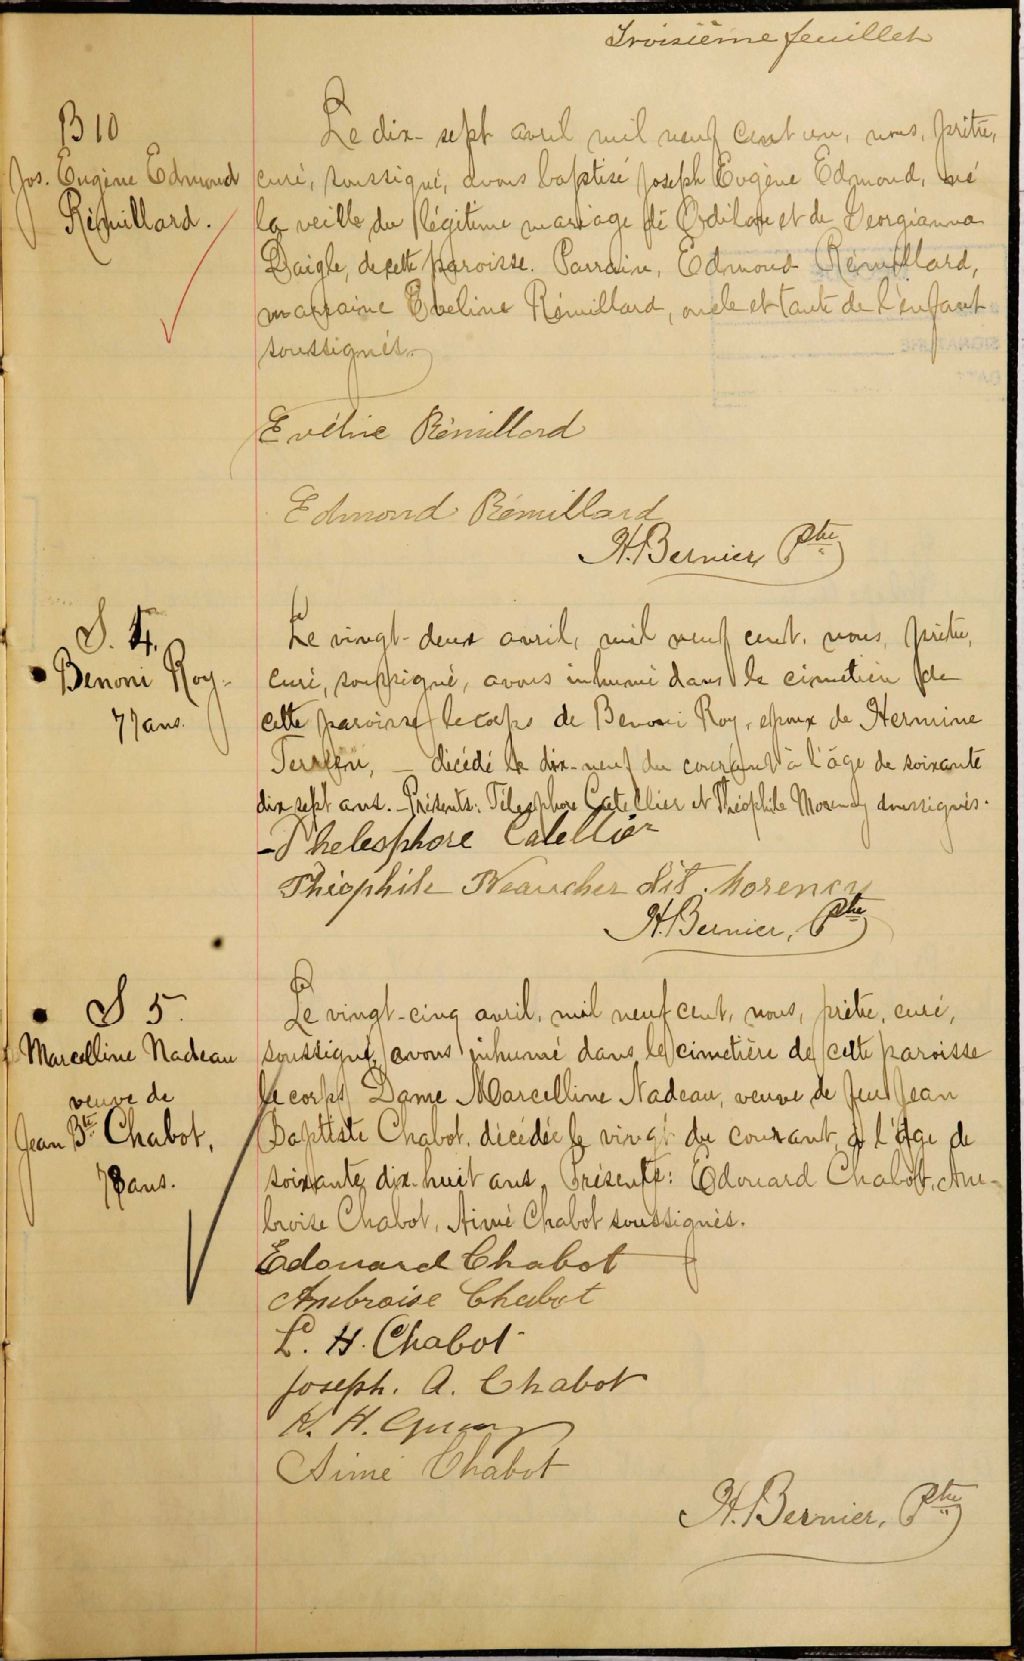 Troisième feuillet
B 10
Jos. Eugène Edmond
Rémillard.
Le dix-sept avril mil neuf cent un, nous, prêtre,
curé, soussigné, avons baptisé Joseph Eugène Edmond, né
la veille du légitime mariage de Odilon et de Georgianna
Daigle, de cette paroisse. Parrain, Edmond Rémillard,
marraine Eveline Rémillard, oncle et tante de l'enfant
soussignés.
Evéline Rémillard
Edmond Rémillard
H. Bernier, Ptre
S. 4.
Benoni Roy
77 ans.
Le vingt-deux avril, mil neuf cent, nous, prêtre,
curé, soussigné, avons inhumé dans le cimetière de
cette paroisse le corps de Benoni Roy, époux de Hermine
décédé le dix-neuf du courant à l'âge de soixante
dix sept ans. - Présents: Télesphore Catellier et Théophile Morency soussignés.
Thelesphore Catellier
Théophile dit Morency
H. Bernier, Ptre
S 5
Marcelline Nadeau
veuve de
Jean Bte Chabot,
78 ans.
Le vingt-cinq avril, mil neuf cent, nous, prêtre, curé,
soussigné, avons inhumé dans le cimetière de cette paroisse
le corps Dame Marcelline Nadeau, veuve de feu Jean
Baptiste Chabot, décédée le vingt du courant, à l'âge de
soixante dix-huit ans. Présents: Edouard Chabot, Am-
broise Chabot, Aimé Chabot soussignés.
Edouard Chabot
Ambroise Chabot
L. H. Chabot
Joseph. A. Chabot
Aimé Chabot
H. Bernier, Ptre